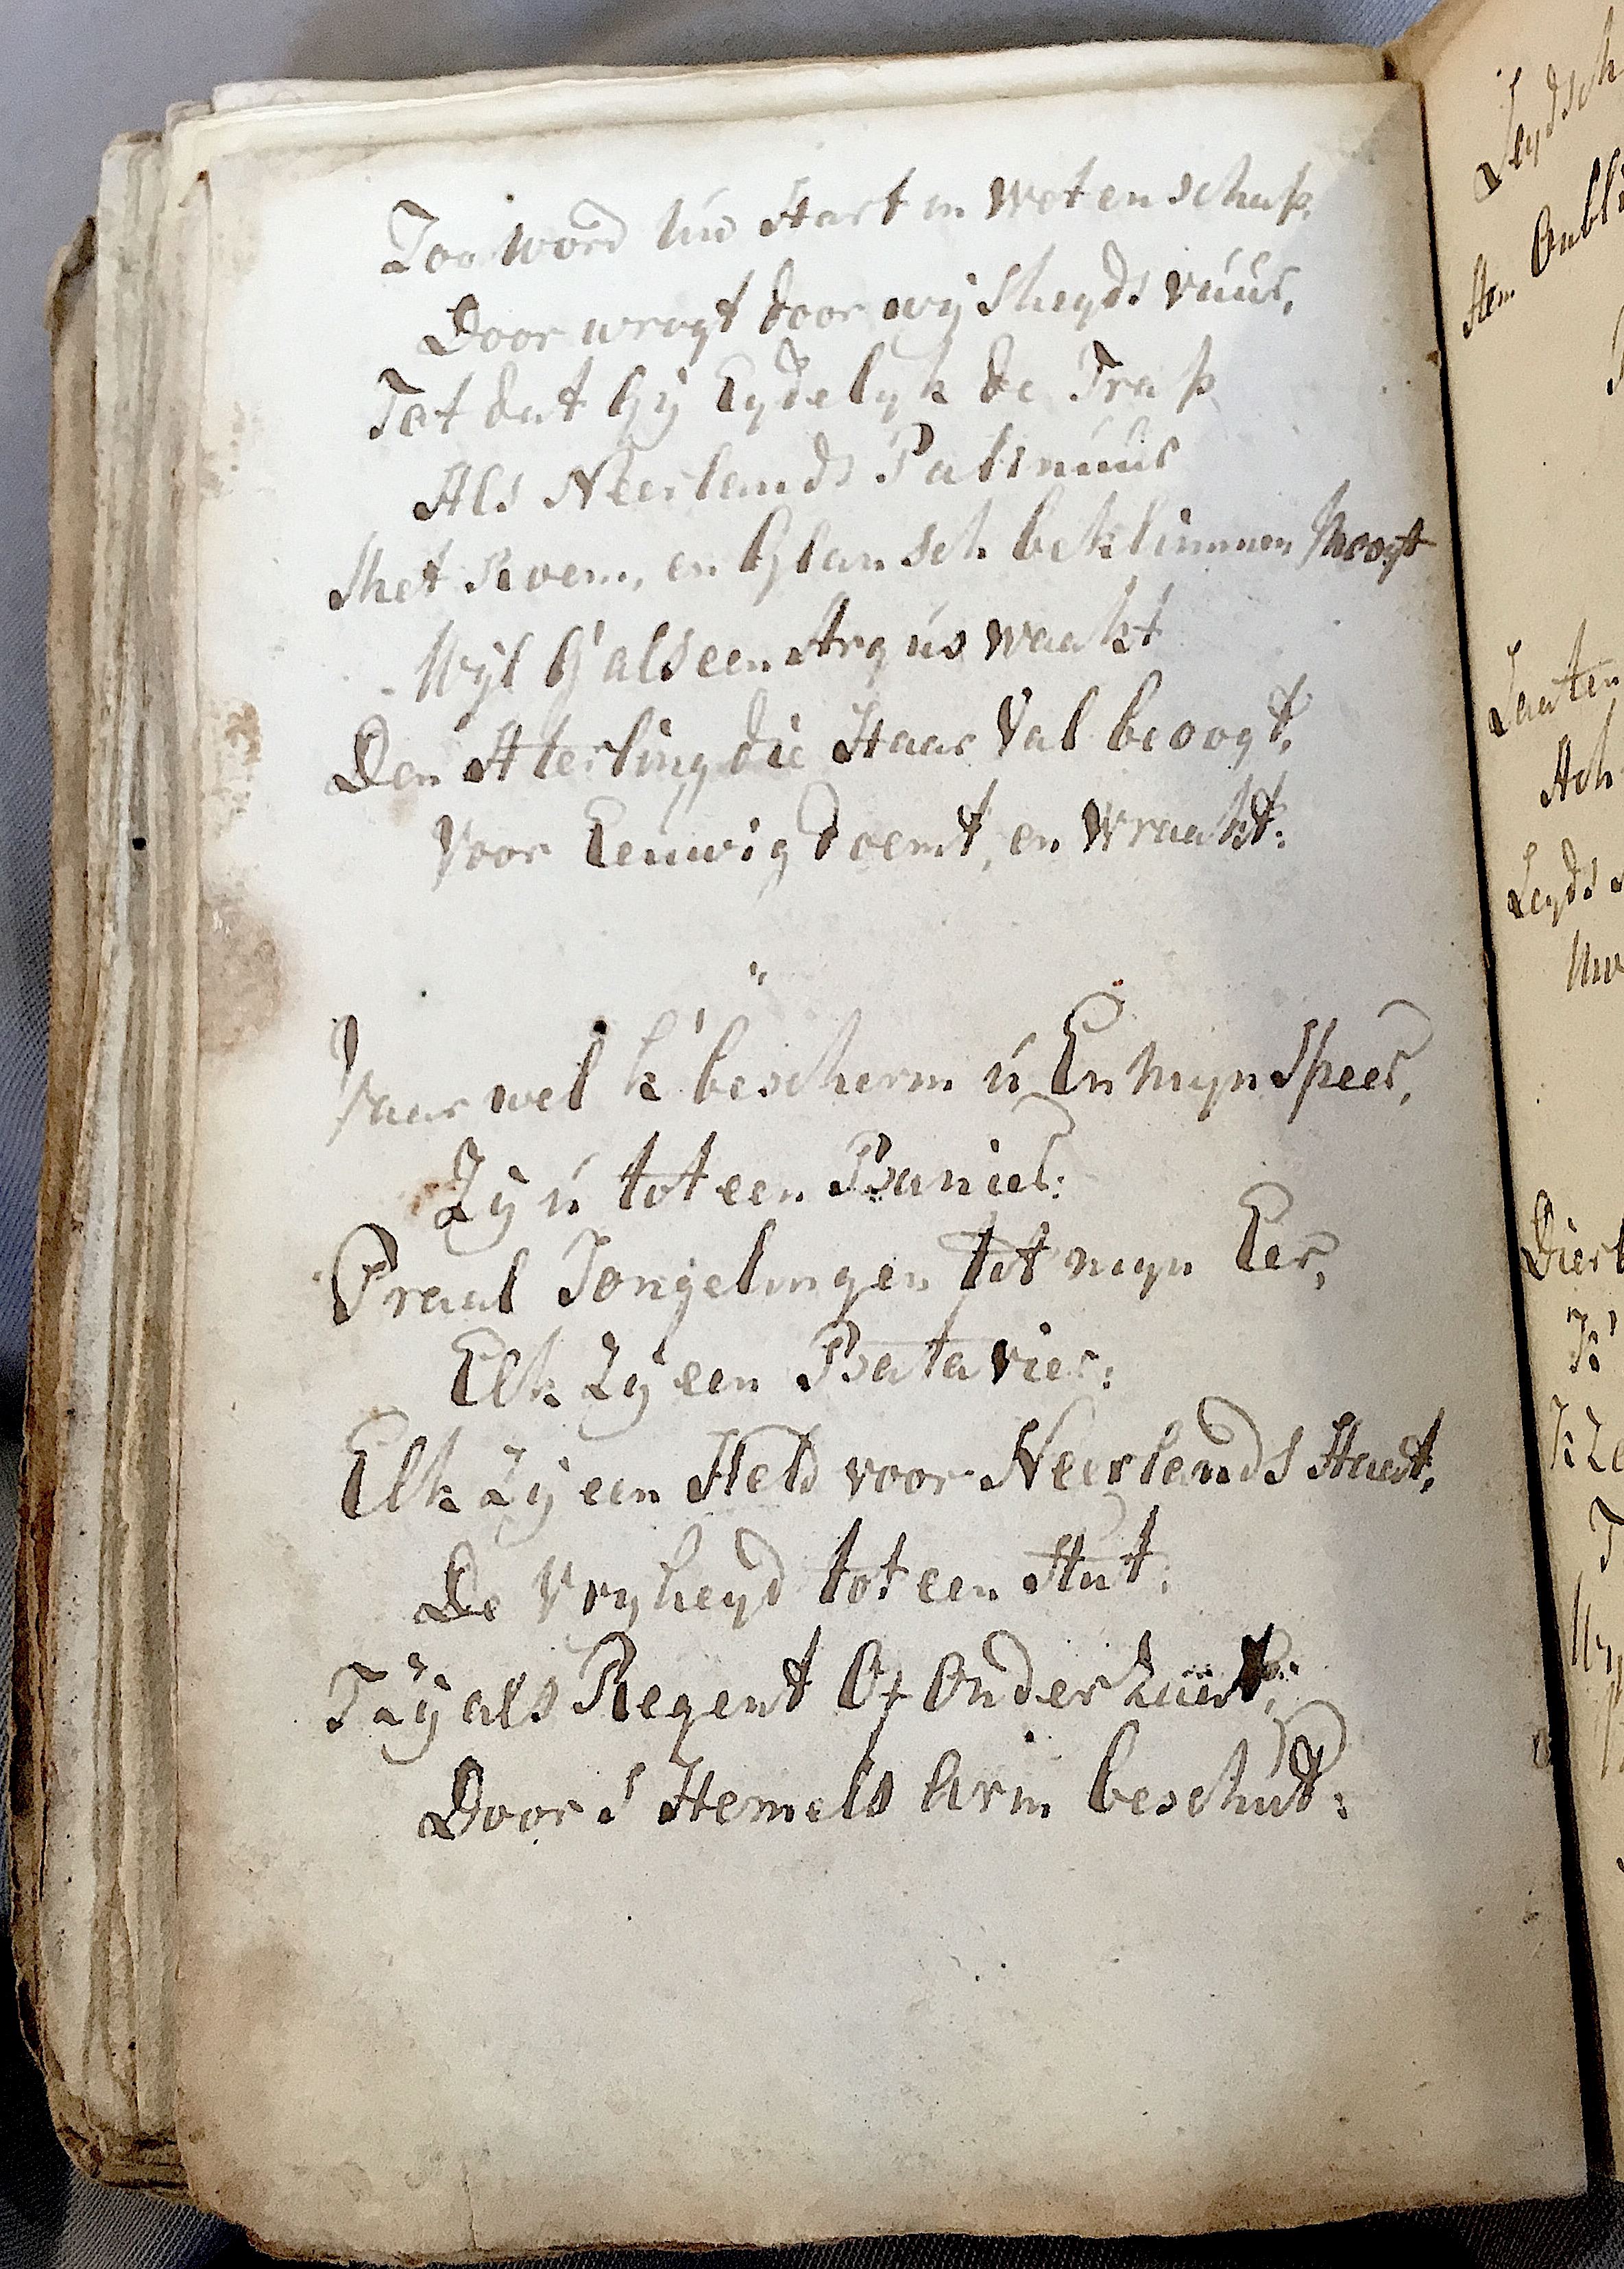 Zoo word uw Hart in Wetenschap,
Door wrogt door wysheyds vuur,
Tot dat Gy Eyndelyk de Trap
Als Neerlands Palinuur
Met Roem, en Glansch beklimmen moogt
Wyl G'als een Argus waakt
Den Aterling die Haar Val beoogt,
Voor Eeuwig doemt, en Wraakt:
Vaar wel k' bescherm ú En myn Speer,
Zy ú tot een Banier:
Praal Jongelingen tot myn Eer,
Elk Zy een Batavier:
Elk Zy een Held voor Neerlands Staat,
De Vryheyd tot een Stut:
T zy als Regent Of Onderzaat,
Door S Hemels Arm beschut:
Leydsch
Hem
Leyds